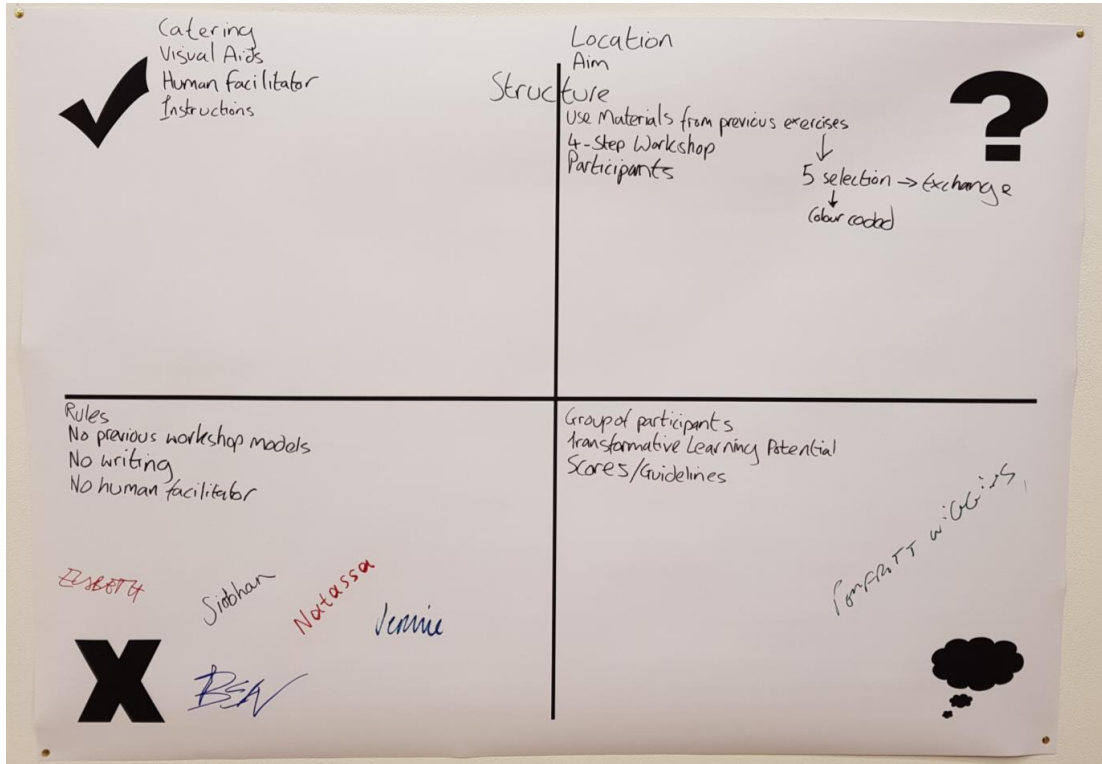 Catering
Visual Aids
Human facilitator
Instructions
Location
Aim
Structure
Use Materials from previous exercises
4-Step Workshop
Participants
5 selection → Exchange
Colour coded
Rules
No previous workshop models
No writing
No human facilitator
ELSBETH
Siobhan
Natassa
Jennie
BEN
Group of participants
Transformative Learning Potential
Scores/Guidelines
WiGGiNS